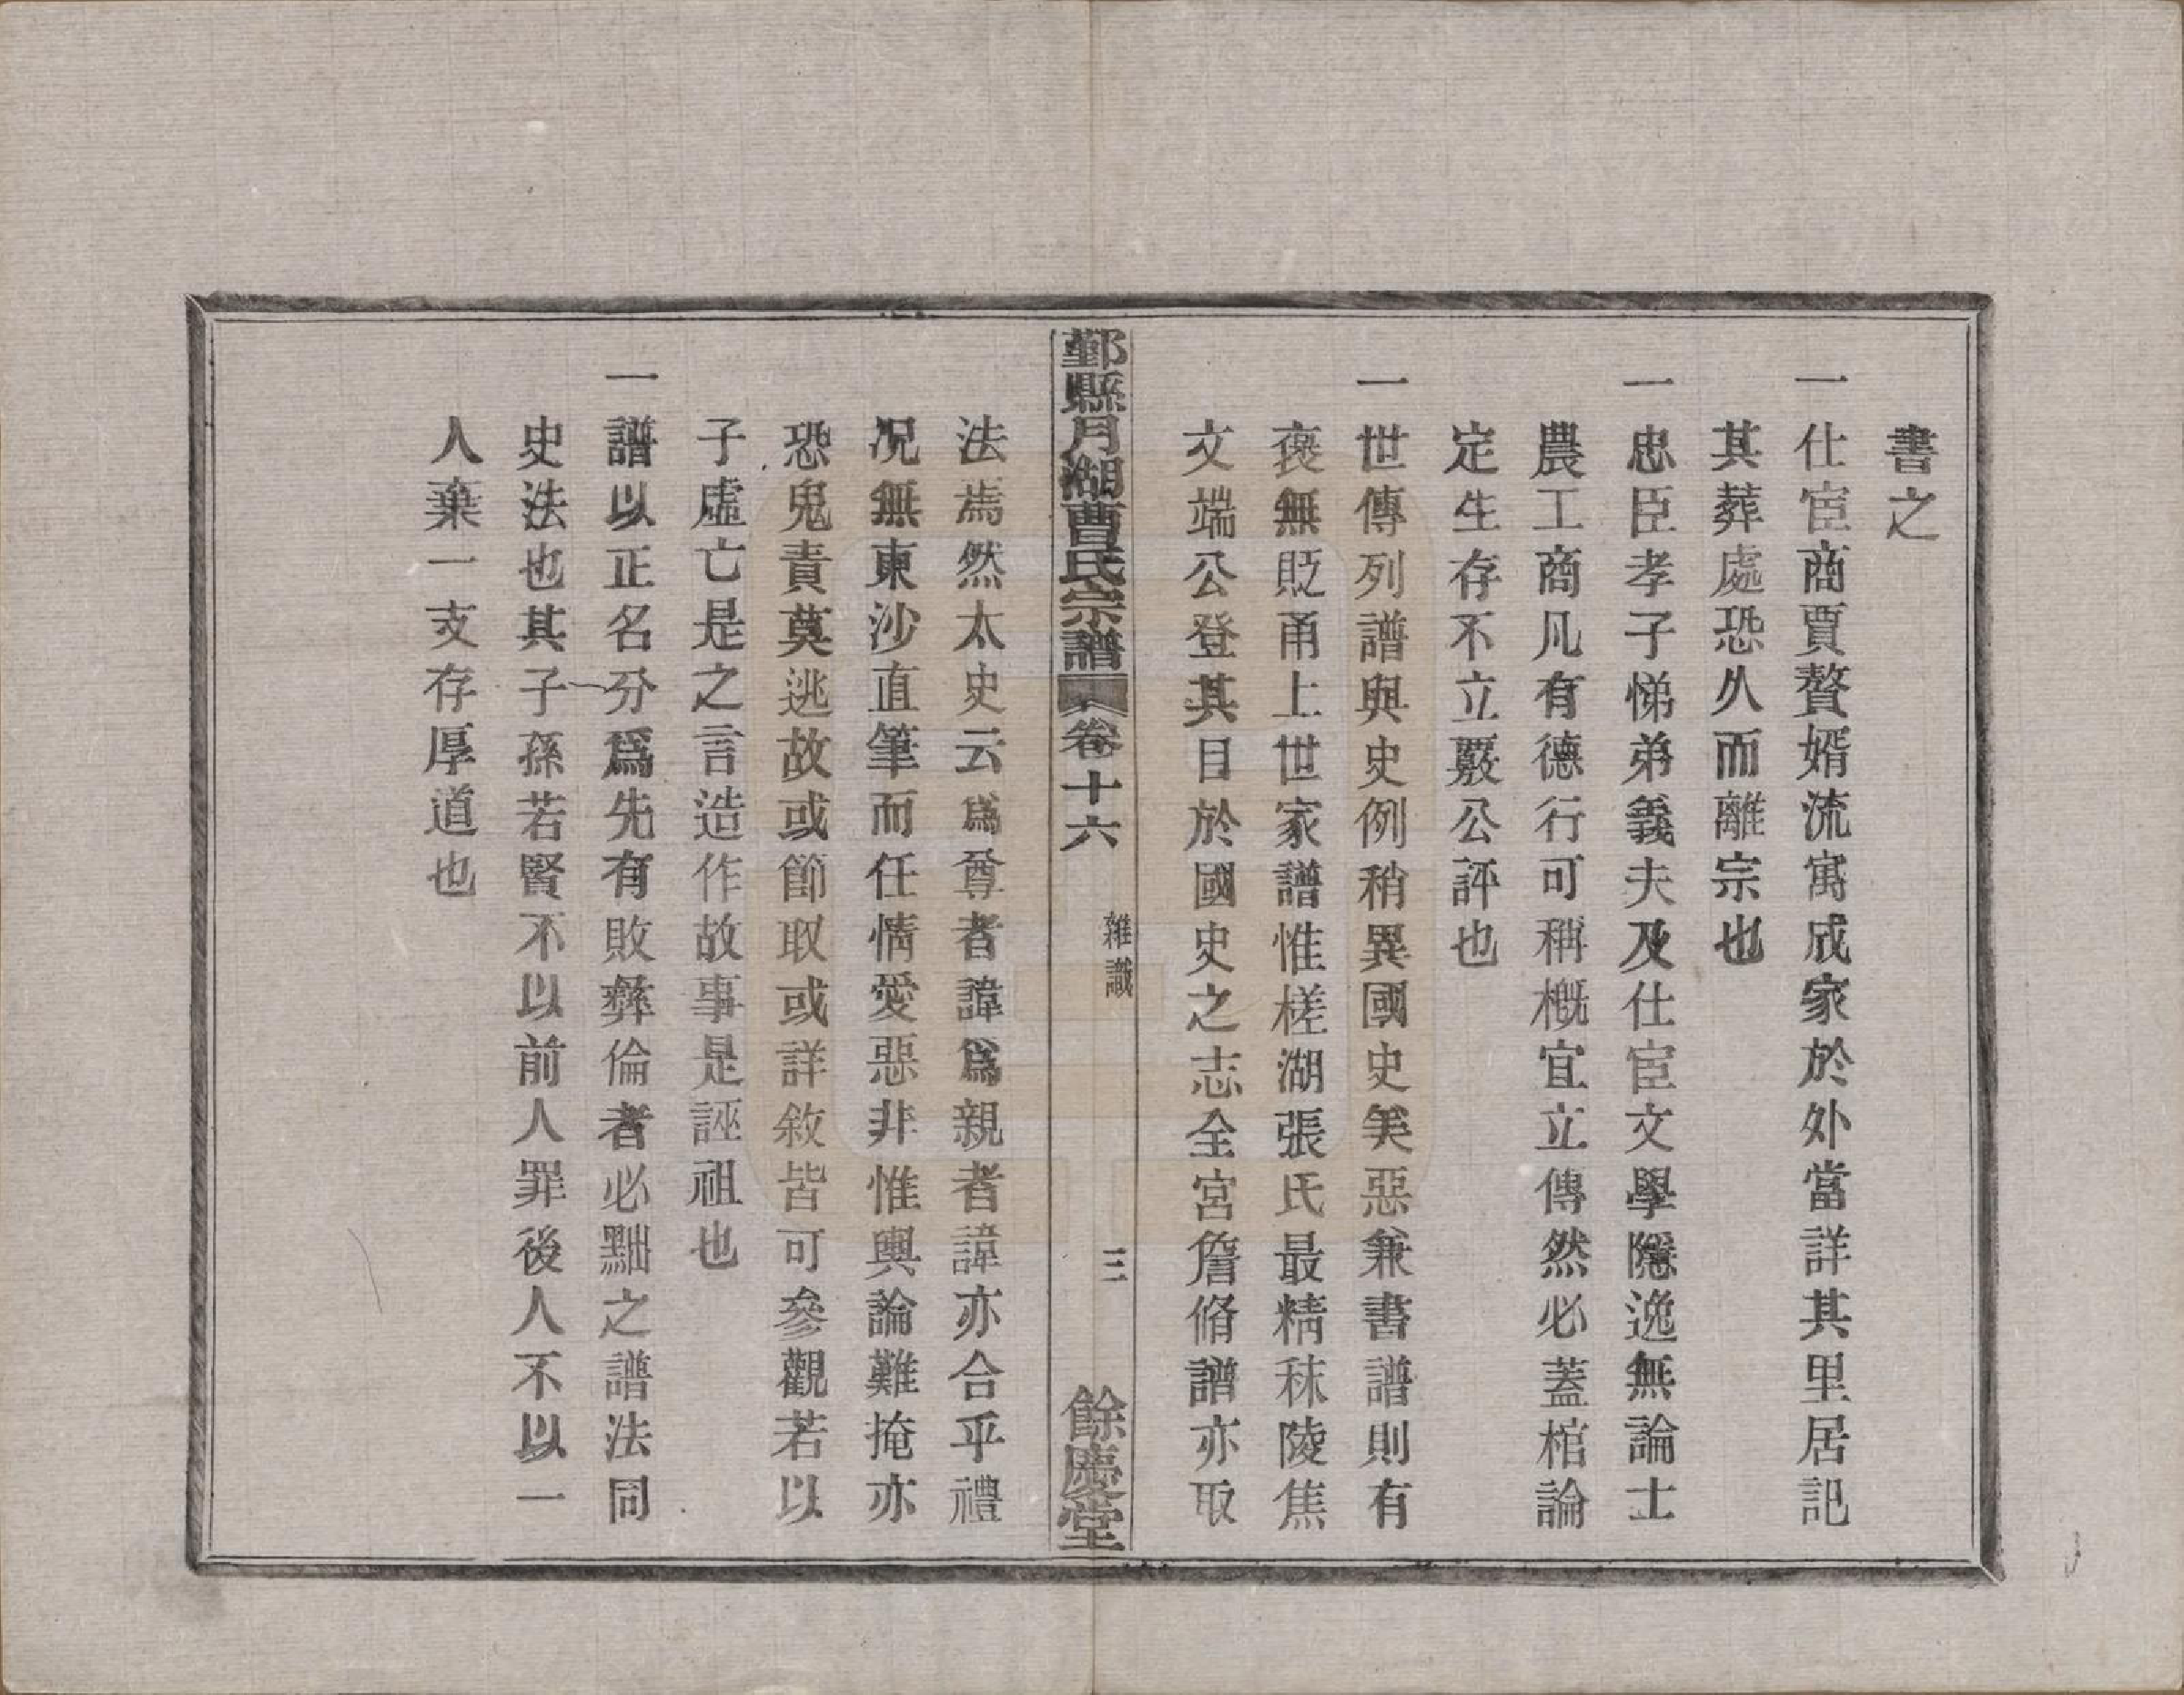 書之
一仕宦商賈贅婿流寓成家於外當詳其里居記
其葬處恐久而離宗也
一忠臣孝子悌弟義夫及仕宦文學隱逸無論士
農工商凡有德行可稱槪宜立傳然必蓋棺論
定生存不立覈公評也
一世傳列譜與史例稍異國史美惡兼書譜則有
褒無貶甬上世家譜惟槎湖張氏最精秣陵焦
文端公登其目於國史之志全宮詹脩譜亦取
鄞縣月湖曹氏宗譜 卷十六 雜識 三 餘慶堂
法焉然太史云爲尊者諱爲親者諱亦合乎禮
况無東沙直筆而任情愛惡非惟輿論難掩亦
恐鬼責莫逃故或節取或詳敘皆可參觀若以
子虛亡是之言造作故事是誣祖也
一譜以正名分爲先有敗彝倫者必黜之譜法同
史法也其子孫若賢不以前人罪後人不以一
人棄一支存厚道也